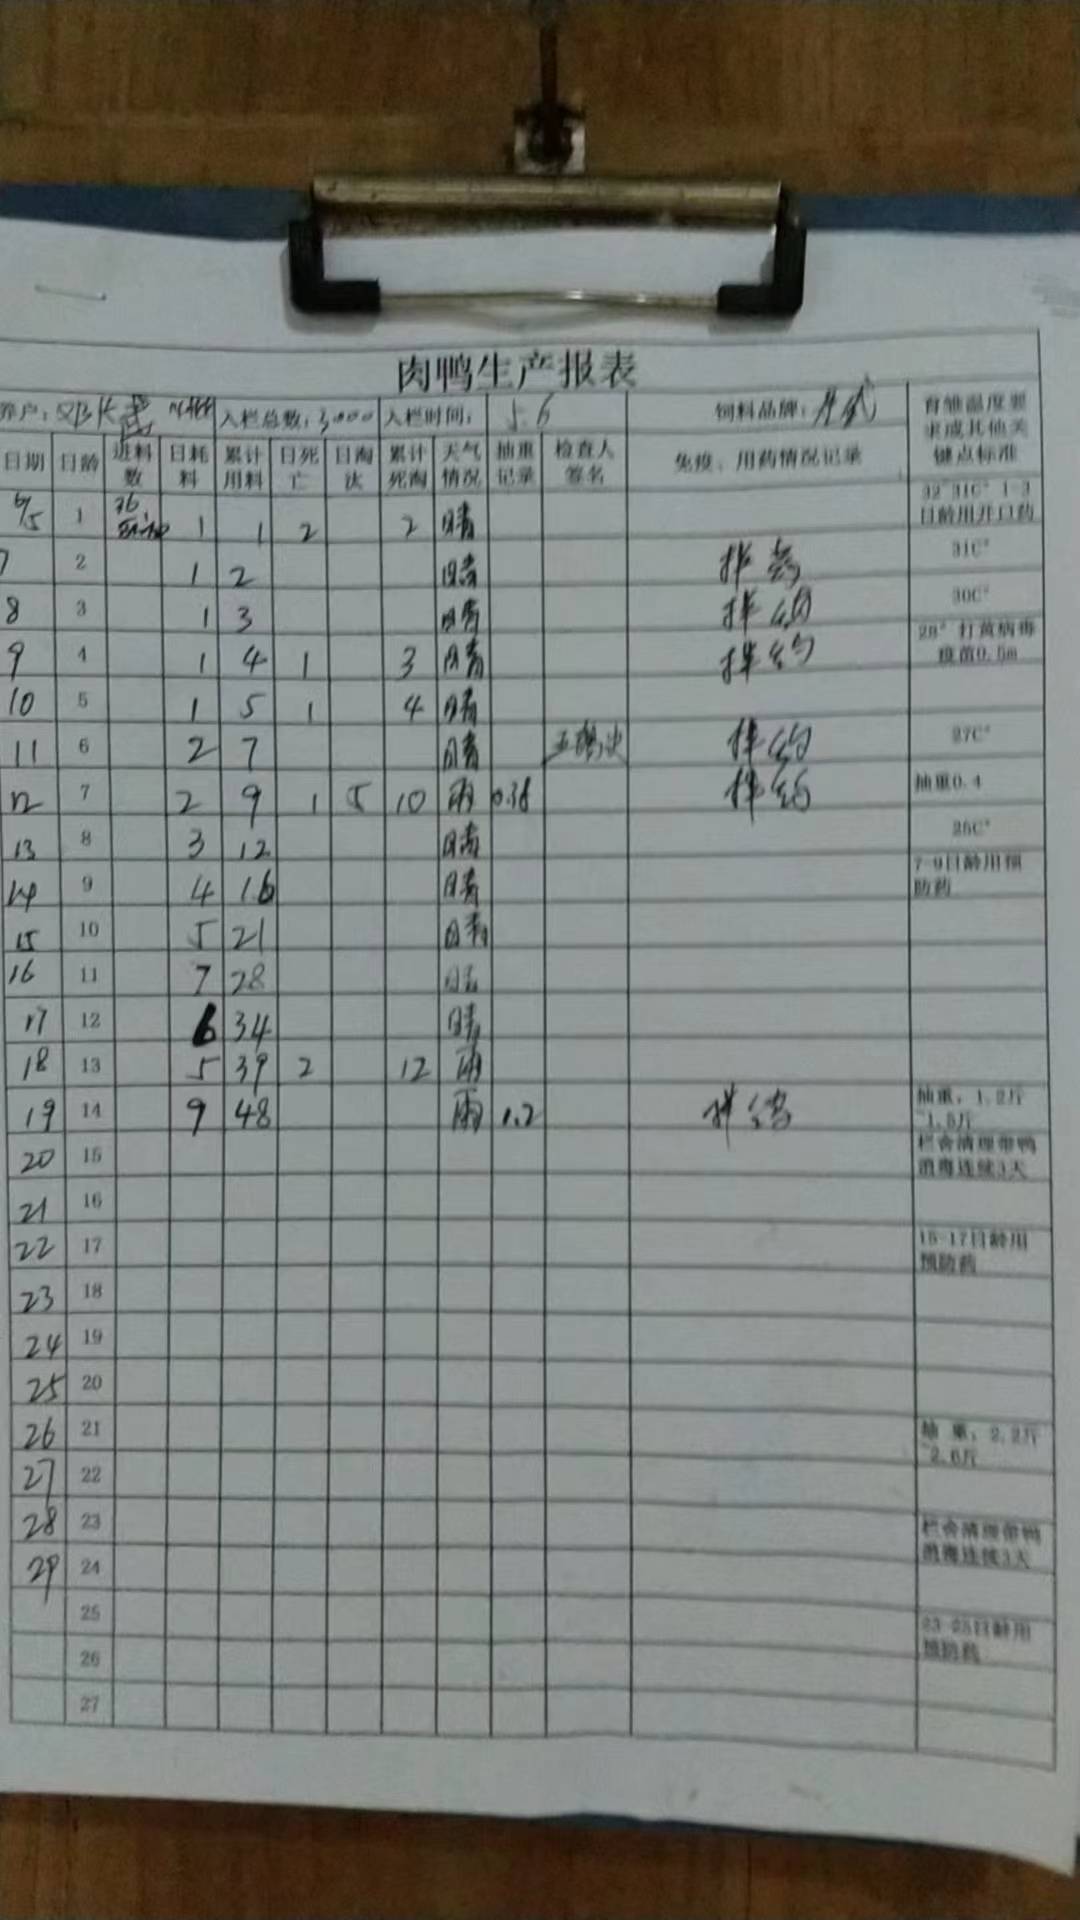 肉鸭生产报表
养户: 入栏总数:3000 入栏时间: 5.6 饲料品牌: 育雏温度要求或其他关键点标准
日期 日龄 进料数 日耗料 累计用料 日死亡 日淘汰 累计死淘 天气情况 抽重记录 检查人签名 免疫、用药情况记录
6/5 1 1 1 2 2 晴 32~31C° 1-3日龄用开口药
7 2 1 2 晴 拌药 31C°
8 3 1 3 晴 拌药 30C°
9 4 1 4 1 3 晴 拌药 28° 打黄病毒疫苗0.5m
10 5 1 5 1 4 晴
11 6 2 7 晴 拌药 27C°
12 7 2 9 1 5 10 雨 拌药 抽重0.4
13 8 3 12 晴 26C°
14 9 4 16 晴 7-9日龄用预防药
15 10 5 21 晴
16 11 7 28 晴
17 12 6 34 晴
18 13 5 39 2 12 雨
19 14 9 48 雨 1.2 拌药 抽重,1.2斤~1.5斤
20 15 栏舍清理带鸭消毒连续3天
21 16
22 17 15-17日龄用预防药
23 18
24 19
25 20
26 21 抽重,2.2斤~2.6斤
27 22
28 23 栏舍清理带鸭消毒连续3天
29 24
25 23-25日龄用预防药
26
27